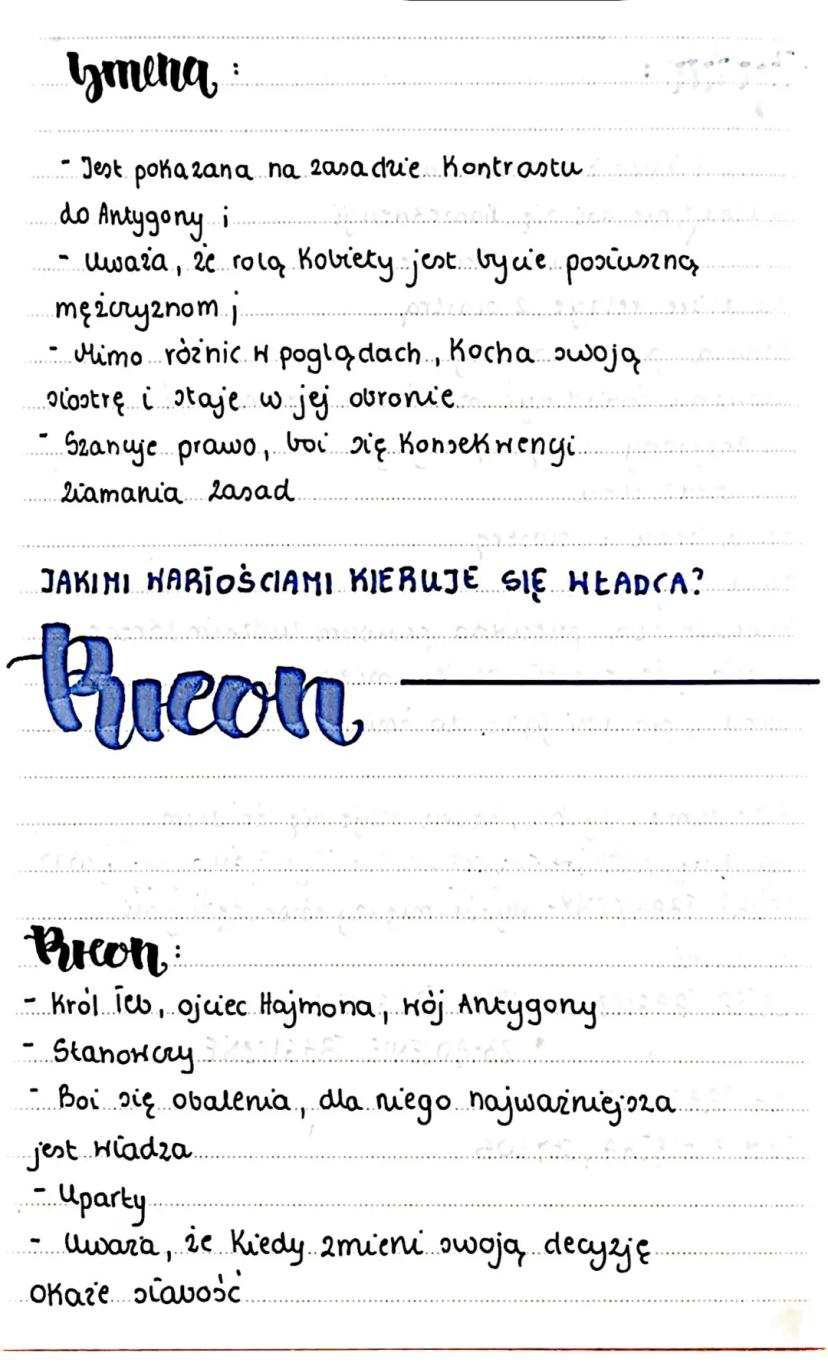 Ismena:
- Jest pokazana na zasadzie kontrastu
do Antygony i
- Uważa, że rolą kobiety jest bycie posłuszną
mężczyznom i
- Mimo różnic w poglądach, kocha swoją
siostrę i staje w jej obronie
- Szanuje prawo, boi się konsekwencji
złamania zasad
JAKIMI WARTOŚCIAMI KIERUJE SIĘ WŁADCA?
Kreon
Kreon:
- Król Teb, ojciec Hajmona, wój Antygony
- Stanowczy
- Boi się obalenia, dla niego najważniejsza
jest władza
- Uparty
- Uważa, że kiedy zmieni swoją decyzję
okaże słabość